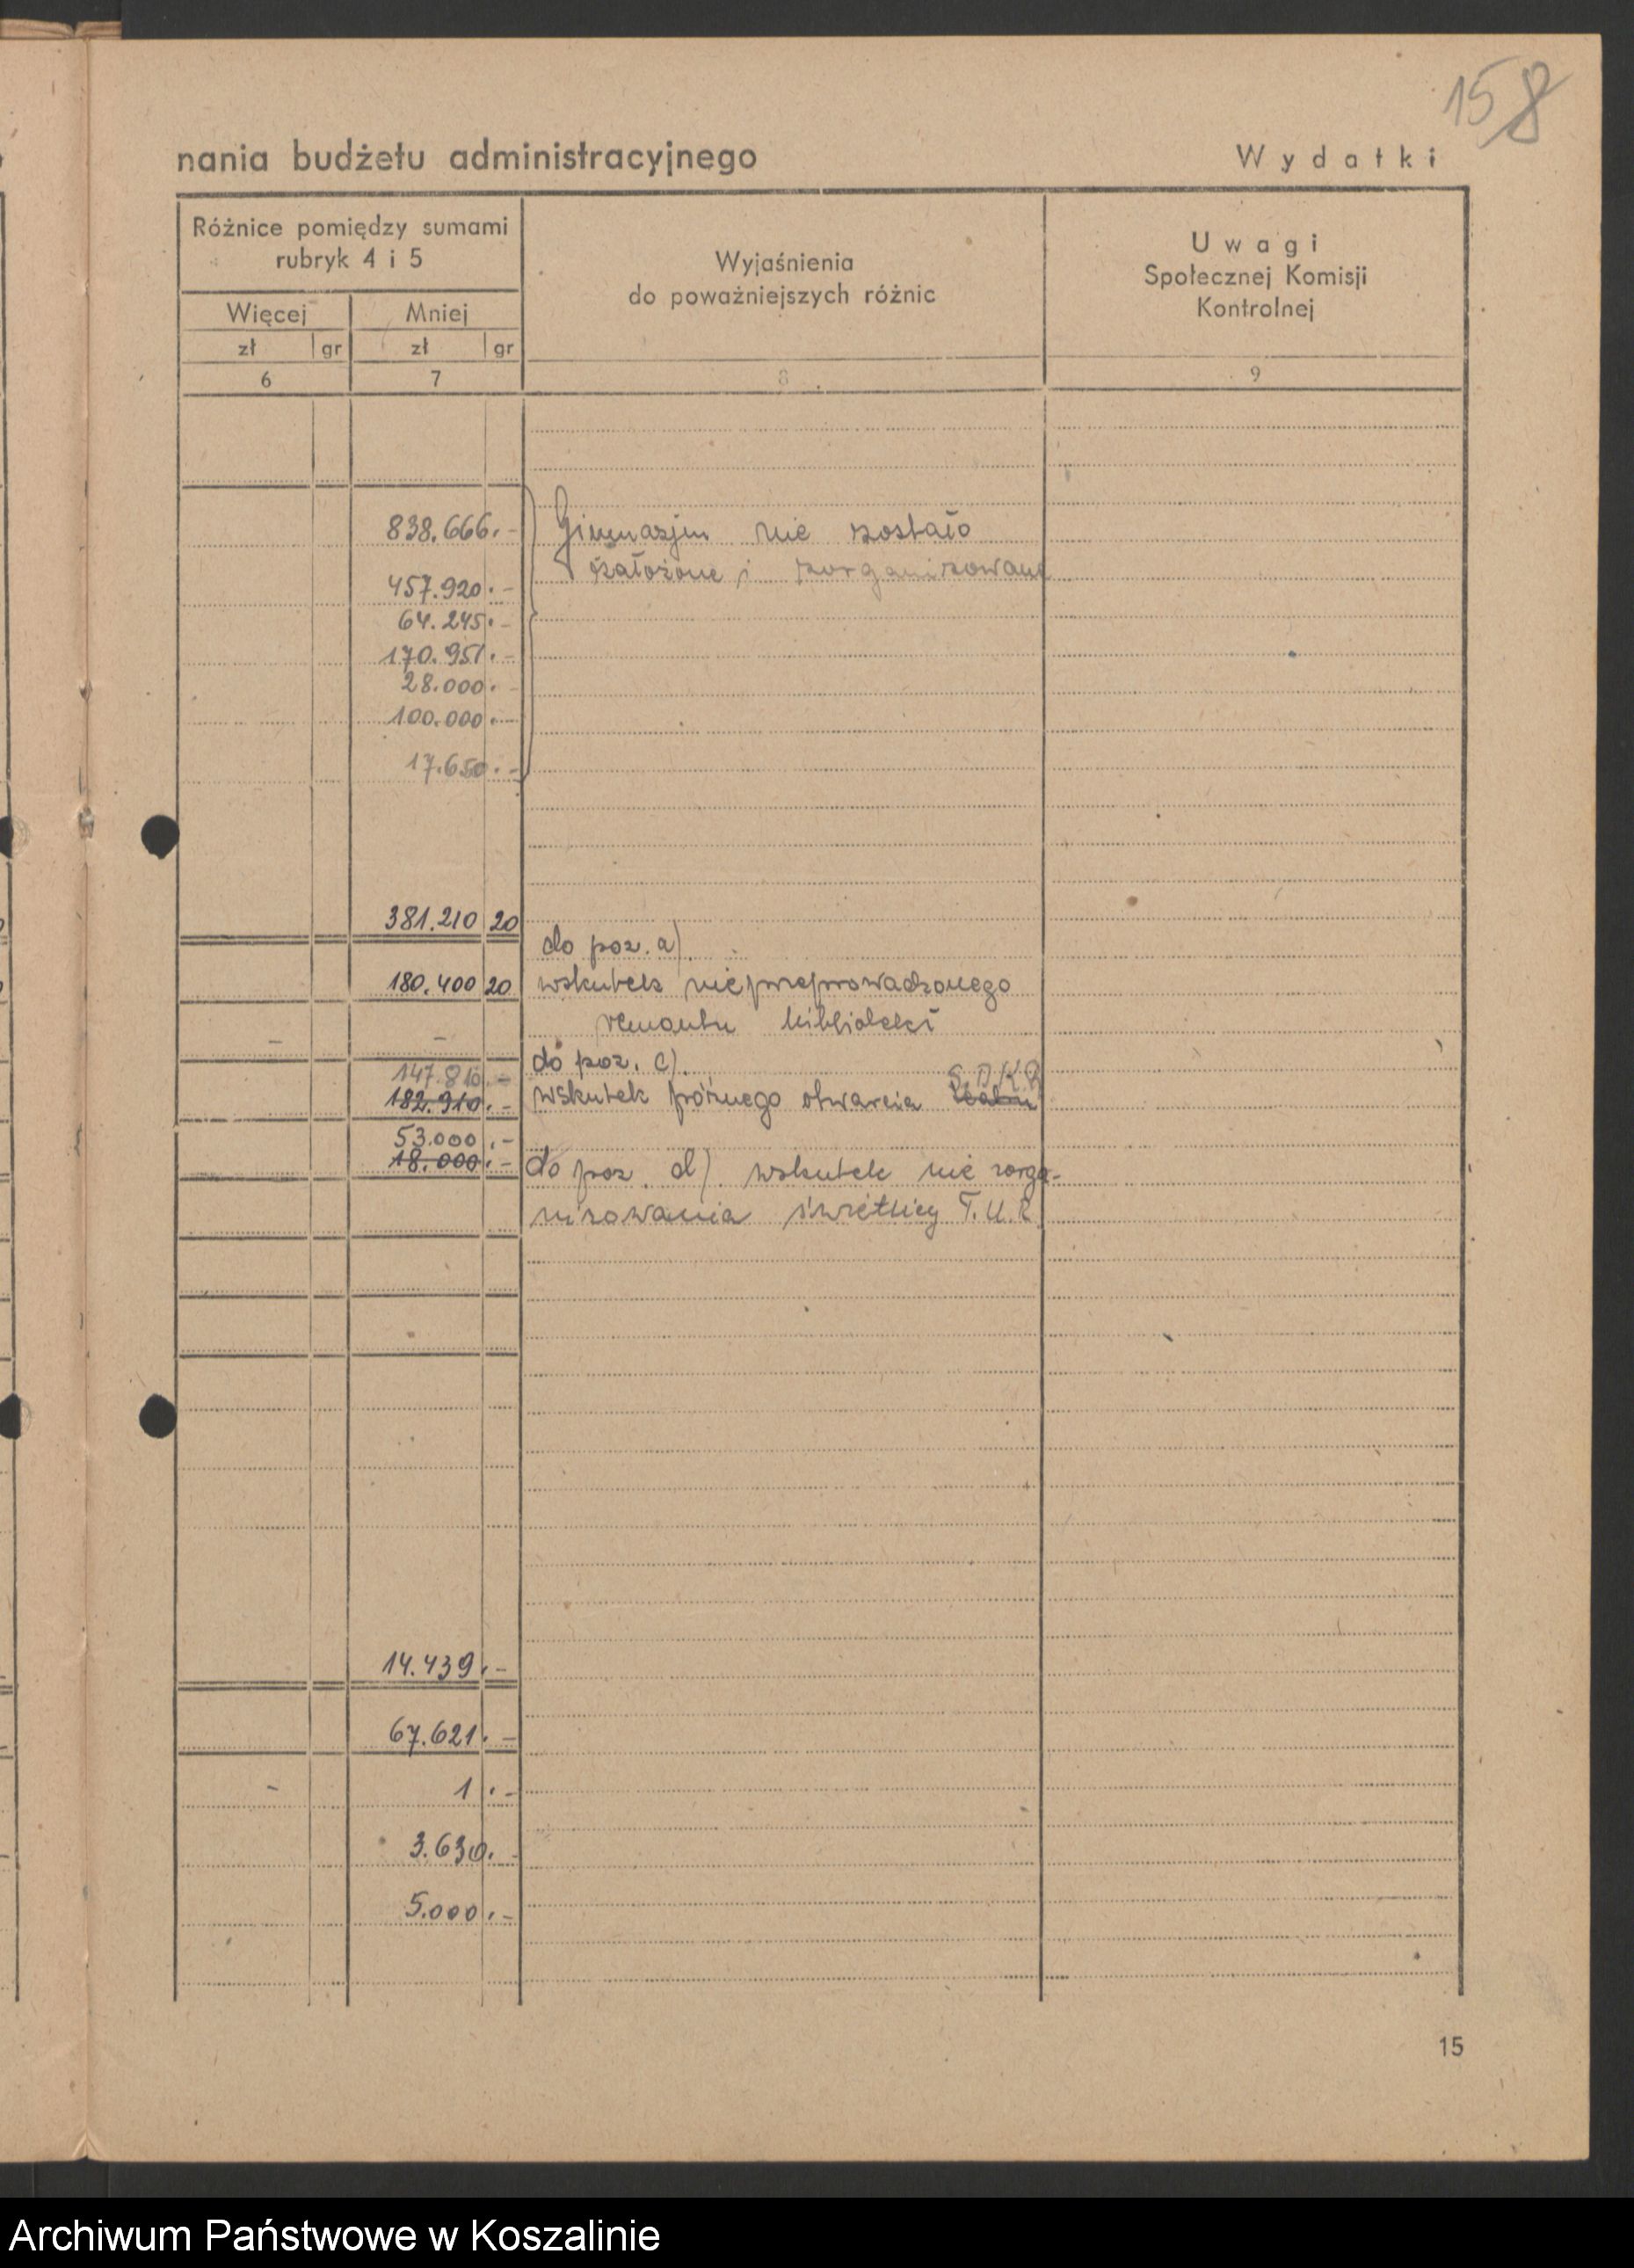 158
nania budżetu administracyjnego Wydatki
Różnice pomiędzy sumami
rubryk 4 i 5
Więcej Mniej
zł gr zł gr
6 7
Wyjaśnienia
do poważniejszych różnic
8
Uwagi
Społecznej Komisji
Kontrolnej
9
838.666.- Gimnazjum nie zostało
założone i zorganizowane
457.920.-
64.245.-
170.951.-
28.000.-
100.000.-
17.650.-
381.210 20
do poz. a)
180.400 20 wskutek nieprzeprowadzonego
remontu biblioteki
- -
do poz. c)
147.810.-
182.910.- wskutek późnego otwarcia
53.000.-
18.000.- do poz. d) wskutek nie zorga-
nizowania świetlicy T.U.R.
14.439.-
67.621.-
- 1.-
3.630.-
5.000.-
15
Archiwum Państwowe w Koszalinie